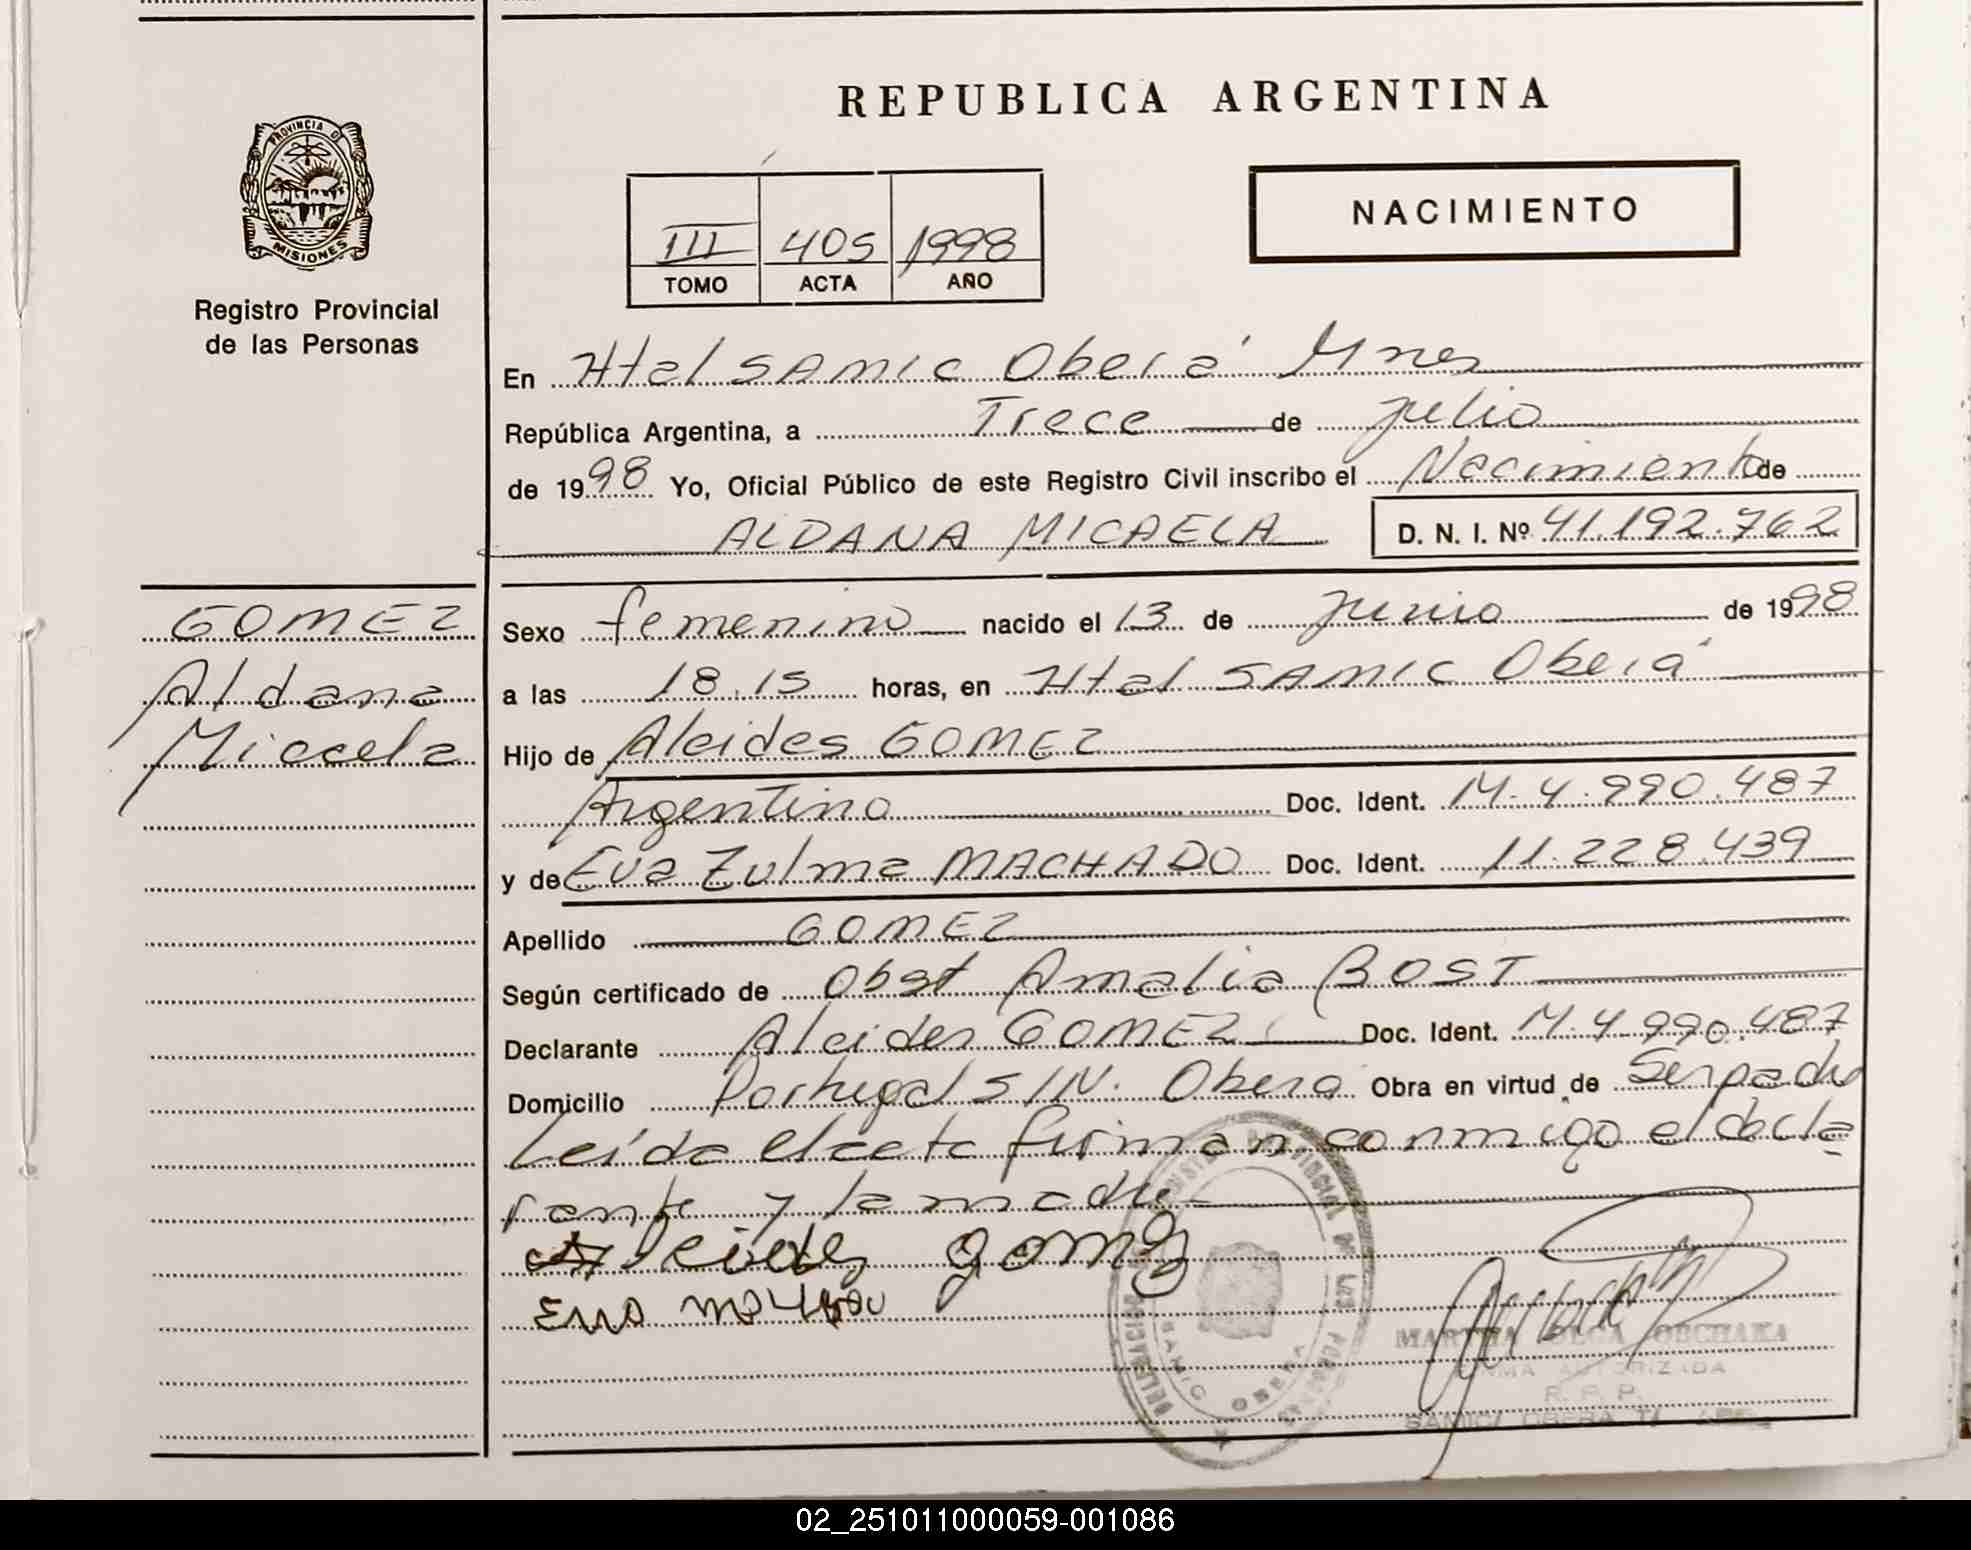 REPUBLICA ARGENTINA
PROVINCIA DE
MISIONES
Registro Provincial
de las Personas
III 405 1998
TOMO ACTA AÑO
NACIMIENTO
En Htal SAMIC Oberá Mnes
República Argentina, a Trece de julio
de 1998 Yo, Oficial Público de este Registro Civil inscribo el Nacimiento de
ALDANA MICAELA D. N. I. Nº 41.192.762
GOMEZ
Aldana
Micaela
Sexo femenino nacido el 13 de Junio de 1998
a las 18.15 horas, en Htal SAMIC Oberá
Hijo de Alcides GOMEZ
Argentino Doc. Ident. M. 4.990.487
y de Eva Zulma MACHADO Doc. Ident. 11.228.439
Apellido GOMEZ
Según certificado de Obst Amalia BOST
Declarante Alcides GOMEZ Doc. Ident. M. 4.990.487
Domicilio Portugal S/N. Oberá Obra en virtud de Ser padre
Leída el acta firman conmigo el decla
rante y la madre
Alcides gomez
MARTHA OLGA OBCHAKA
FIRMA AUTORIZADA
R. P. P.
SAMIC OBERA
02_251011000059-001086